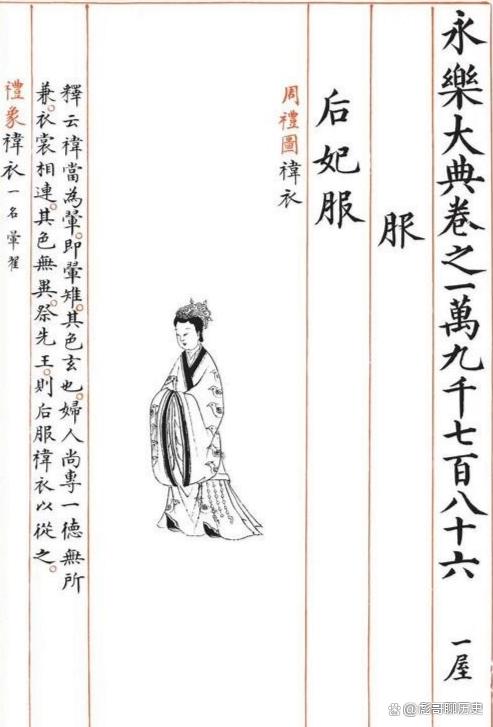 永樂大典卷之一萬九千七百八十六 一屋
服
后妃服
周禮圖褘衣
釋云褘當為翬。即翬雉。其色玄也。婦人尚專一德無所
兼。衣裳相連。其色無異。祭先王。則后服褘衣以從之。
禮象褘衣一名翬翟
@彪哥聊历史